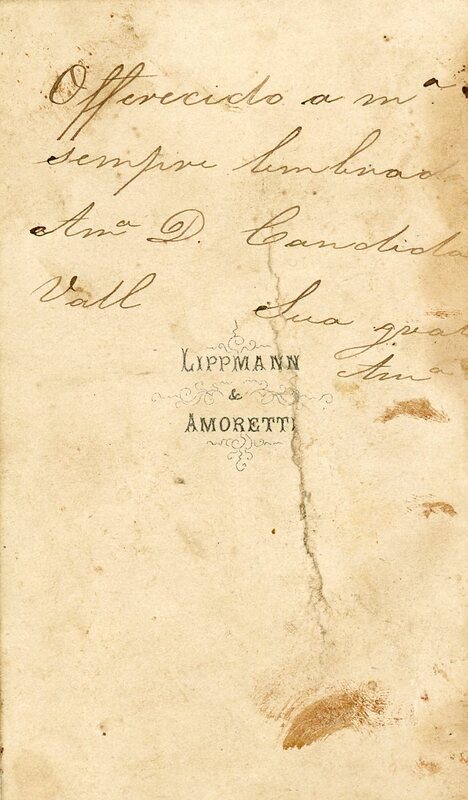 Offerecido a mª
sempre lembrad
Amª D. Candida
Vall
Sua grat
Amª
LIPPMANN
&
AMORETTI